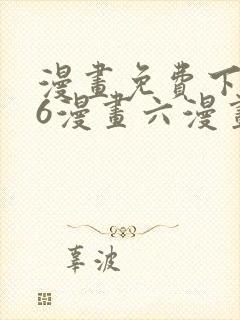 漫畫免費下
6漫畫六漫畫
辜波